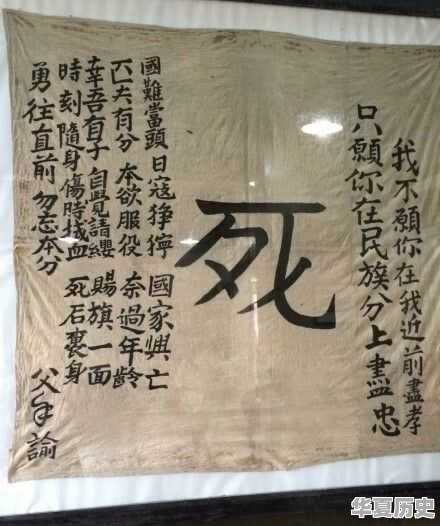 我不願你在我近前盡孝
只願你在民族分上盡忠
死
國難當頭 日寇猙獰 國家興亡
匹夫有分 本欲服役 奈過年齡
幸吾有子 自覺請纓 賜旗一面
時刻隨身 傷時拭血 死后裹身
勇往直前 勿忘本分
父手諭
华夏历史